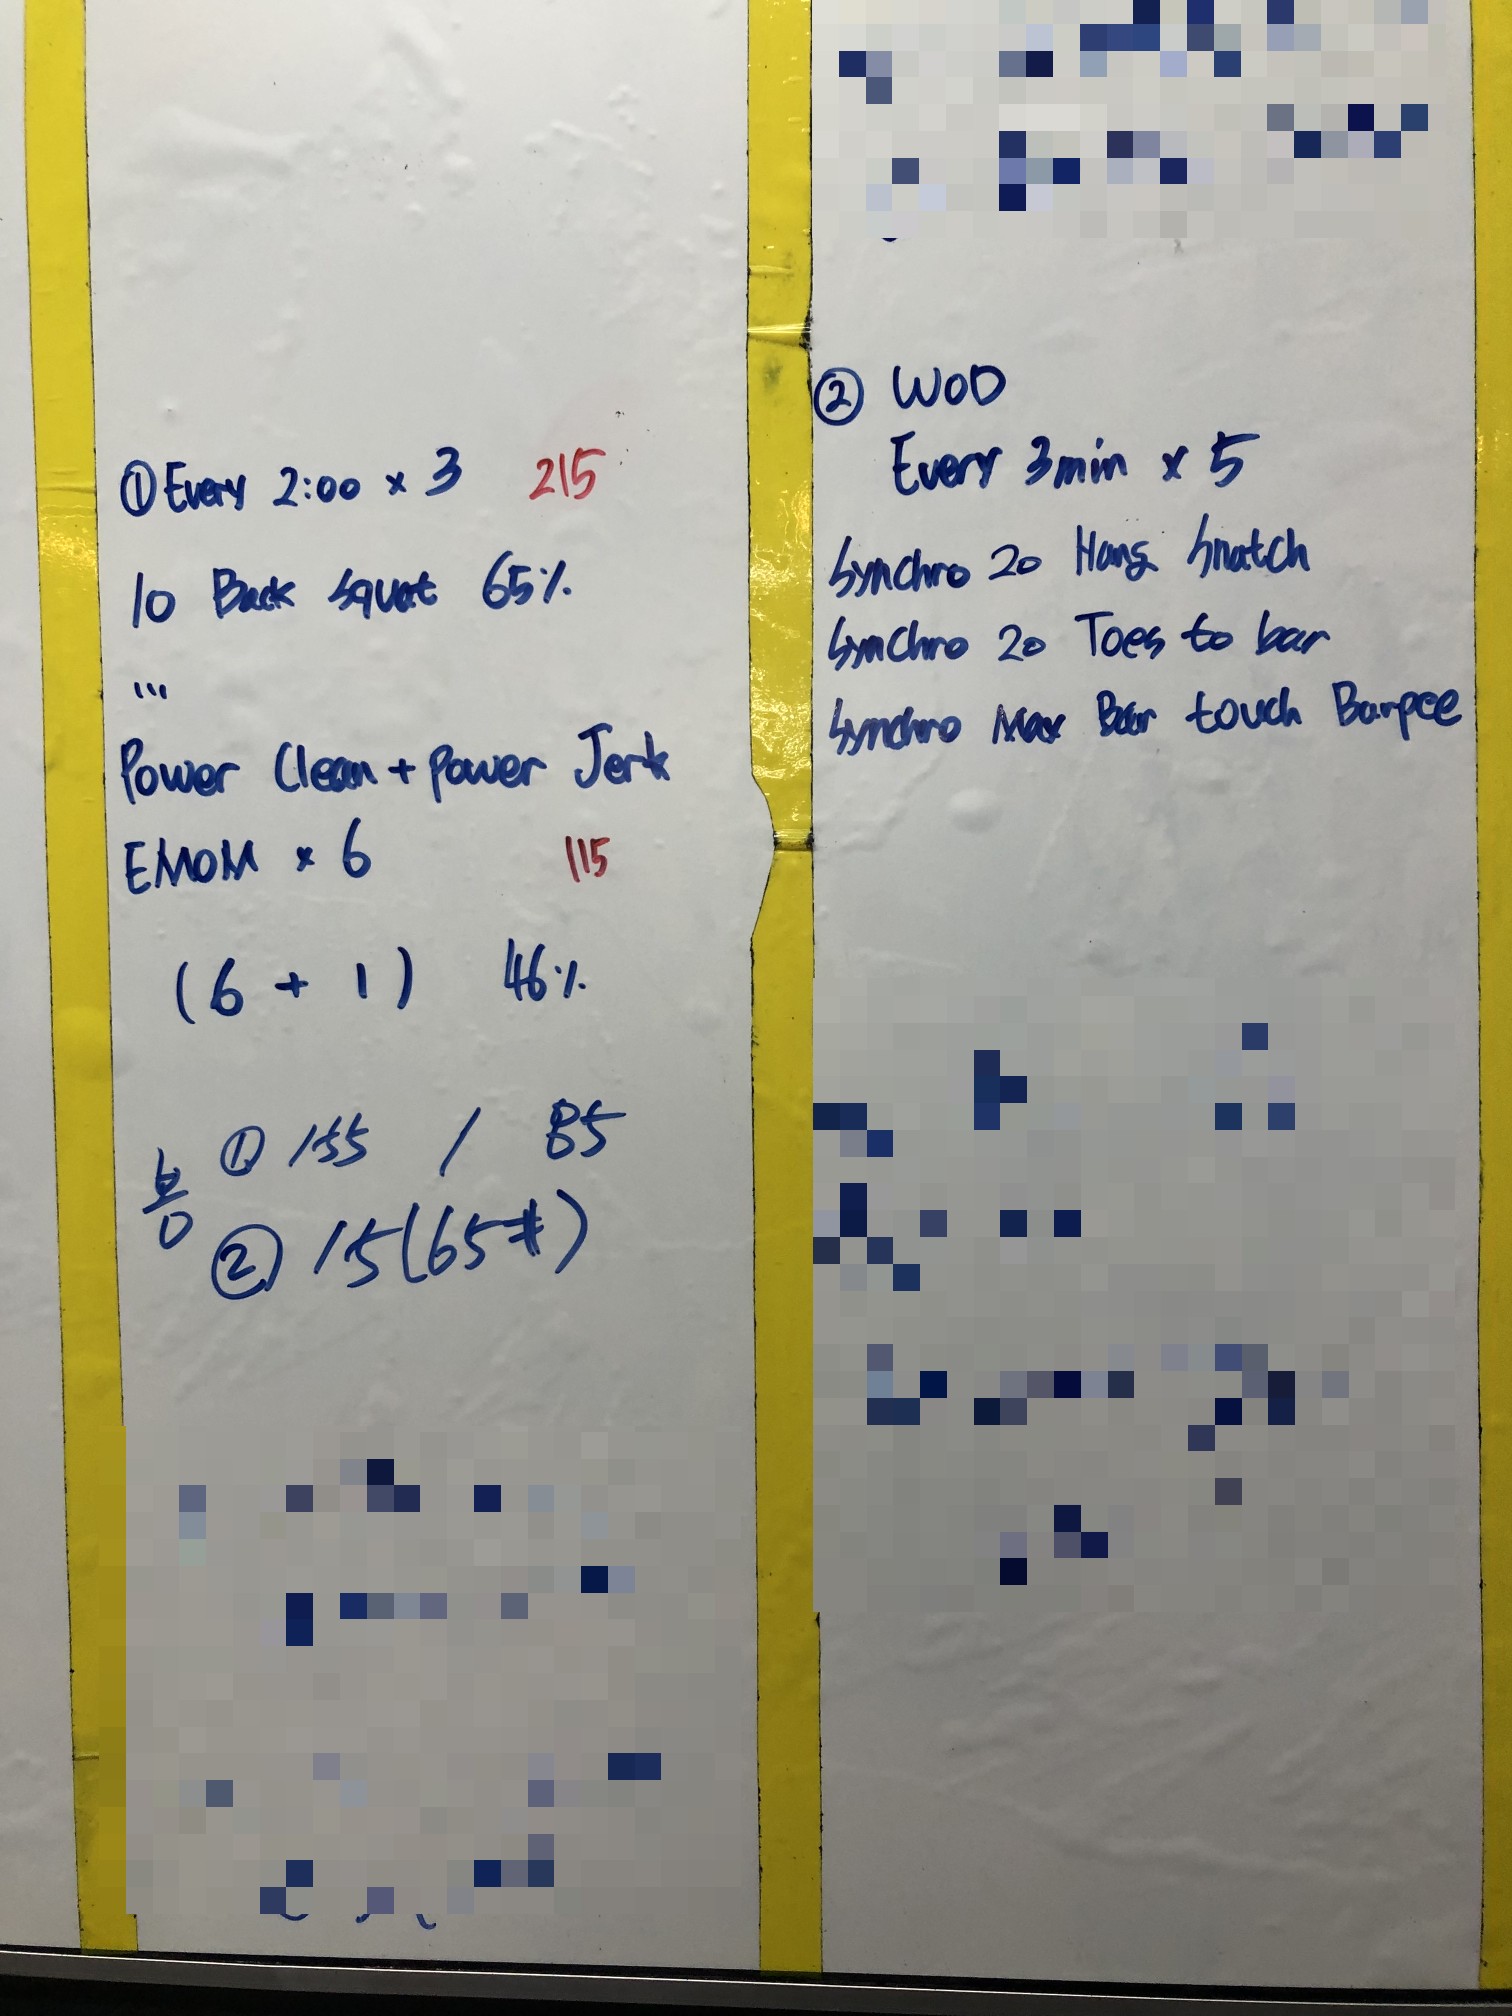 ① Every 2:00 x 3 215
10 Back Squat 65%
"'
Power Clean + Power Jerk
EMOM x 6 115
(6 + 1) 46%
봉 ① 155 / 85
② 15(65#)
② WOD
Every 3min x 5
Synchro 20 Hang Snatch
Synchro 20 Toes to bar
Synchro Max Bar touch Barpee